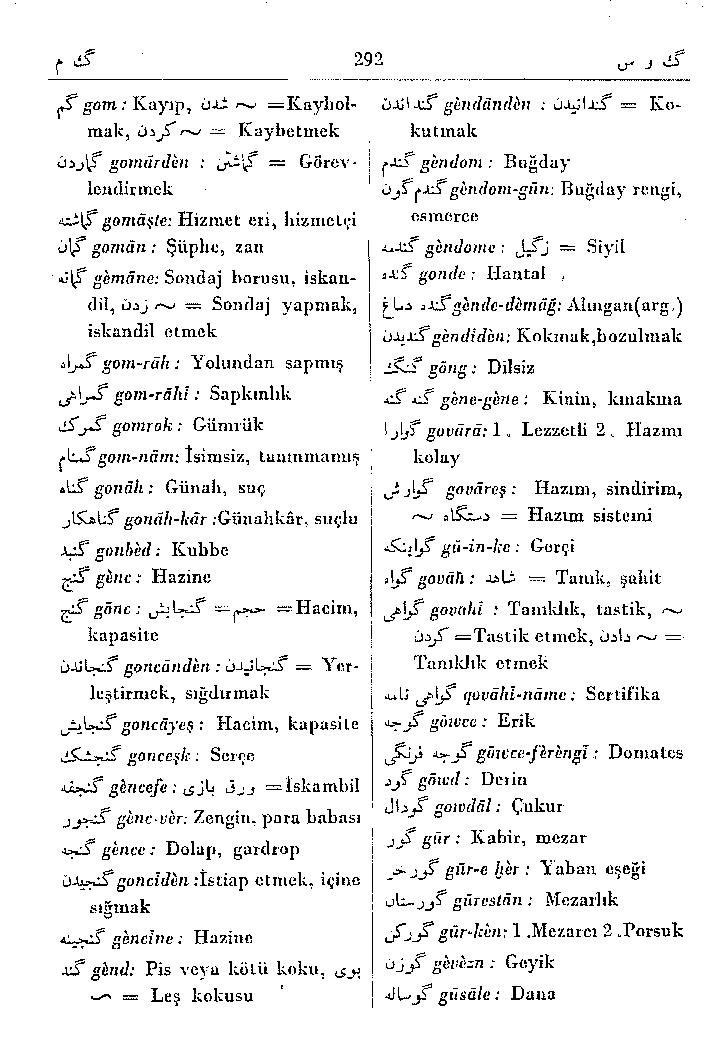 گ م 292 گ ر س
گم gom: Kayıp, شدن ~ =Kaybol-
mak, کردن ~ = Kaybetmek
گماردن gomārdèn : گماشتن = Görev-
lendirmek
گماشته gomāşte: Hizmet eri, hizmetçi
گمان gomān : Şüphe, zan
گمانه gèmāne: Sondaj borusu, iskan-
dil, زدن ~ = Sondaj yapmak,
iskandil etmek
گمراه gom-rāh : Yolundan sapmış
گمراهی gom-rāhî : Sapkınlık
گمرک gomrok : Gümrük
گمنام gom-nām: İsimsiz, tanınmamış
گناه gonāh : Günah, suç
گناهکار gonāh-kâr :Günahkâr, suçlu
گنبد gonbèd : Kubbe
گنج gènc : Hazine
گنج gōnc : گنجایش = حجم =Hacim,
kapasite
گنجاندن goncāndèn : گنجانیدن = Yer-
leştirmek, sığdırmak
گنجایش goncāyeş : Hacim, kapasite
گنجشک gonceşk : Serçe
گنجفه gèncefe : ورق بازی =İskambil
گنجور gènc-vèr: Zengin, para babası
گنجه gènce : Dolap, gardrop
گنجیدن goncîdèn :İstiap etmek, içine
sığmak
گنجینه gèncîne : Hazine
گند gènd: Pis veya kötü koku, بوی
~ = Leş kokusu
گنداندن gèndāndèn : گندانیدن = Ko-
kutmak
گندم gèndom : Buğday
گندم گون gèndom-gūn: Buğday rengi,
esmerce
گندمه gèndome : زگیل = Siyil
گنده gonde : Hantal
گنده دماغ gènde-dèmāğ: Alıngan(arg.)
گندیدن gèndîdèn: Kokmak,bozulmak
گنگ gōng : Dilsiz
گنه گنه gène-gène : Kinin, kınakına
گوارا govārā: 1 . Lezzetli 2 . Hazmı
kolay
گوارش govāreş : Hazım, sindirim,
~ دستگاه = Hazım sistemi
گواینکه gû-in-ke : Gerçi
گواه govāh : شاهد = Tanık, şahit
گواهی govahî : Tanıklık, tastik, ~
کردن =Tastik etmek, دادن ~ =
Tanıklık etmek
گواهی نامه qovāhî-nāme : Sertifika
گوجه gōwce : Erik
گوجه فرنگی gōwce-fèrèngî : Domates
گود gōwd : Derin
گودال gowdāl : Çukur
گور gūr : Kabir, mezar
گورخر gūr-e ḫèr : Yaban eşeği
گورستان gūrestān : Mezarlık
گورکن gūr-kèn: 1 .Mezarcı 2 .Porsuk
گوزن gèvèzn : Geyik
گوساله gūsāle : Dana